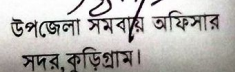 উপজেলা সমবায় অফিসার
সদর, কুড়িগ্রাম।